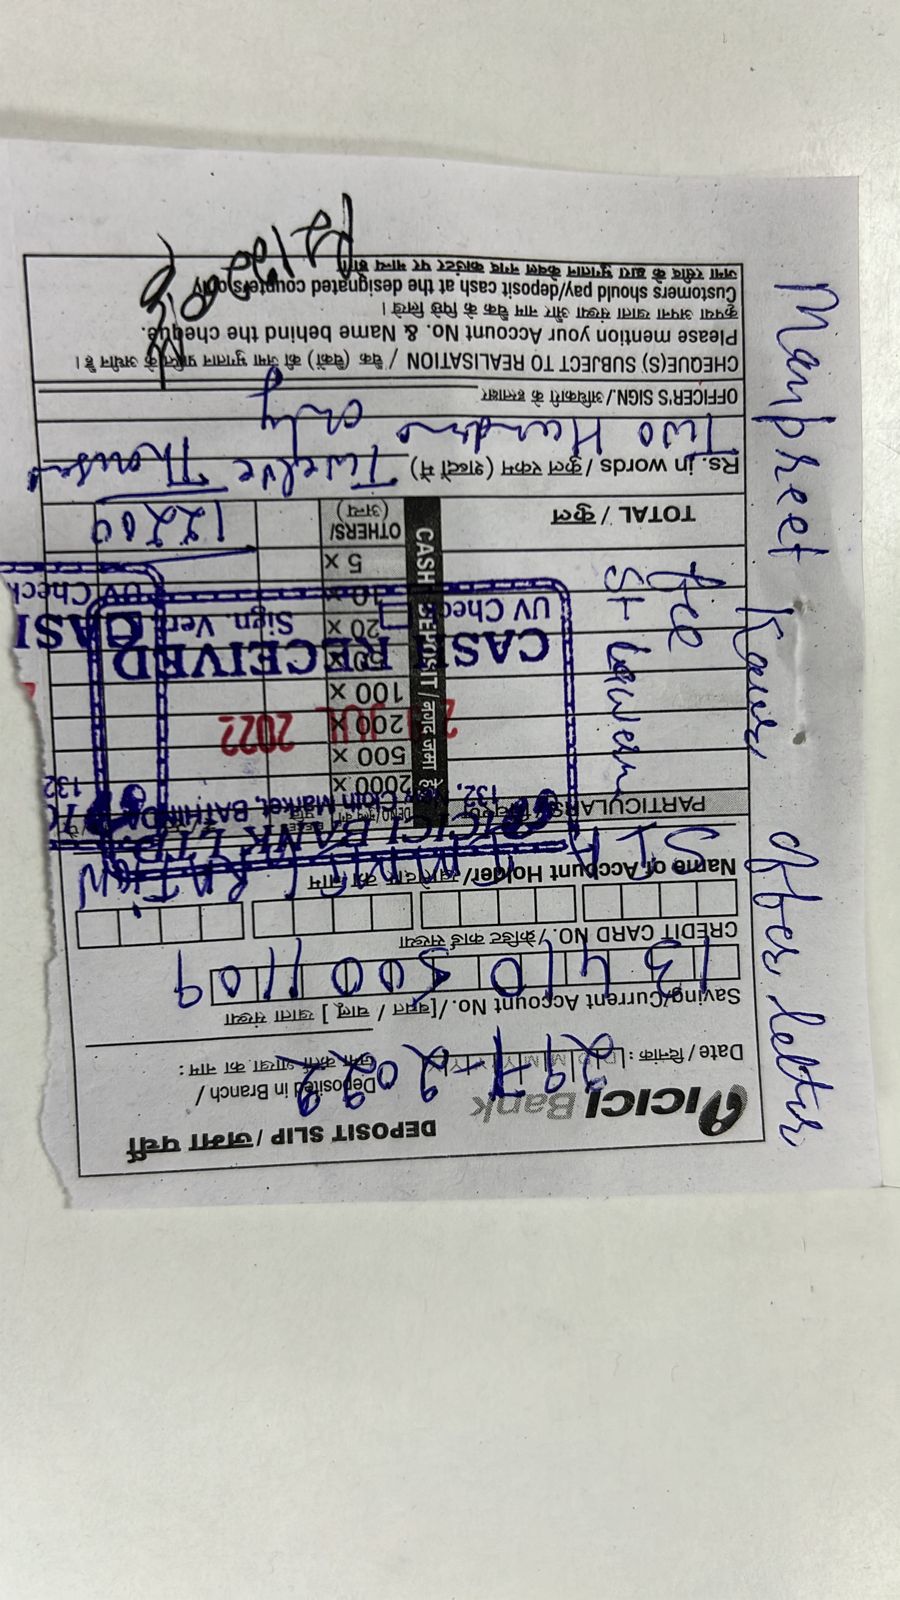 ICICI Bank
DEPOSIT SLIP / जमा पर्ची
Deposited in Branch /
जमा कर्ता शाखा का नाम :
Date / दिनांक : 29-7-2022
Saving/Current Account No./[बचत / चालू ] खाता संख्या
CREDIT CARD NO. / क्रेडिट कार्ड संख्या
Name of Account Holder/ खातेदार का नाम
PARTICULARS
ICICI BANK LTD
132, Cloth Market, BATHINDA
2000 x
500 x
200 x
JUL 2022
100 x
50 x
CASH RECEIVED
20 x
UV Check
Sign. Veri.
10 x
5 x
CASH DEPOSIT / नगद जमा
fee
St Lawren
OTHERS/
(अन्य)
12200
TOTAL / कुल
Rs. in words / कुल रकम (शब्दों में) Twelve Thousand
Two Hundred only
OFFICER'S SIGN./ अधिकारी के हस्ताक्षर
CHEQUE(S) SUBJECT TO REALISATION / चैक (चैकों) की जमा भुगतान प्राप्ति के अधीन है।
Please mention your Account No. & Name behind the cheque.
कृपया अपना खाता संख्या और नाम चैक के पिछे लिखें।
Customers should pay/deposit cash at the designated counters only
जमा रसीद के द्वारा भुगतान केवल नगद काउंटर पर मान्य होगा
Manpreet Kaur offer letter